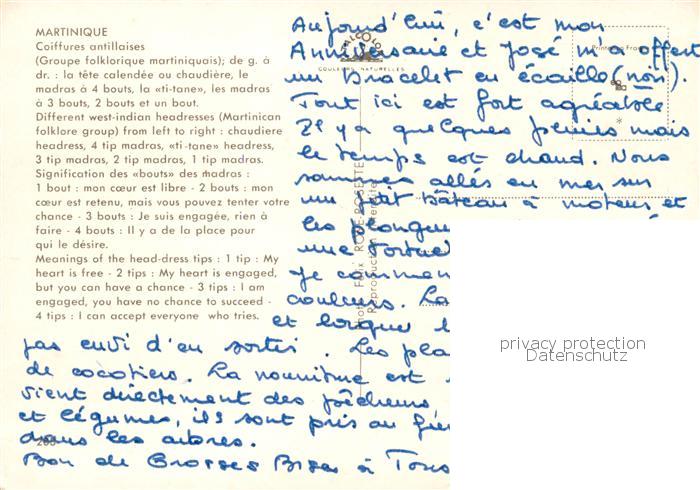 MARTINIQUE
Coiffures antillaises
(Groupe folklorique martiniquais); de g. à
dr. : la tête calendée ou chaudière, le
madras à 4 bouts, la «ti-tane», les madras
à 3 bouts, 2 bouts et un bout.
Different west-indian headresses (Martinican
folklore group) from left to right : chaudiere
headress, 4 tip madras, «ti-tane» headress,
3 tip madras, 2 tip madras, 1 tip madras.
Signification des «bouts» des madras :
1 bout : mon cœur est libre - 2 bouts : mon
cœur est retenu, mais vous pouvez tenter votre
chance - 3 bouts : Je suis engagée, rien à
faire - 4 bouts : Il y a de la place pour
qui le désire.
Meanings of the head-dress tips : 1 tip : My
heart is free - 2 tips : My heart is engaged,
but you can have a chance - 3 tips : I am
engaged, you have no chance to succeed -
4 tips : I can accept everyone who tries.
COULEURS NATURELLES
Reproduction interdite
Aujourd'hui, c'est mon
Anniversaire et José m'a offert
un Bracelet en écaille (noir).
Tout ici est fort agréable
Il y a quelques pluies mais
le temps est chaud. Nous
sommes allés en mer sur
un petit bâteau à moteur et
les plongeu
une Tortue
Je commen
couleurs. La
et lorsque l
pas envi d'en sortir. Les pla
de cocotiers. La nourriture est
vient directement des pêcheurs,
et légumes, ils sont pris au
dans les arbres.
Bon de Grosses Bises à Tous
privacy protection
Datenschutz